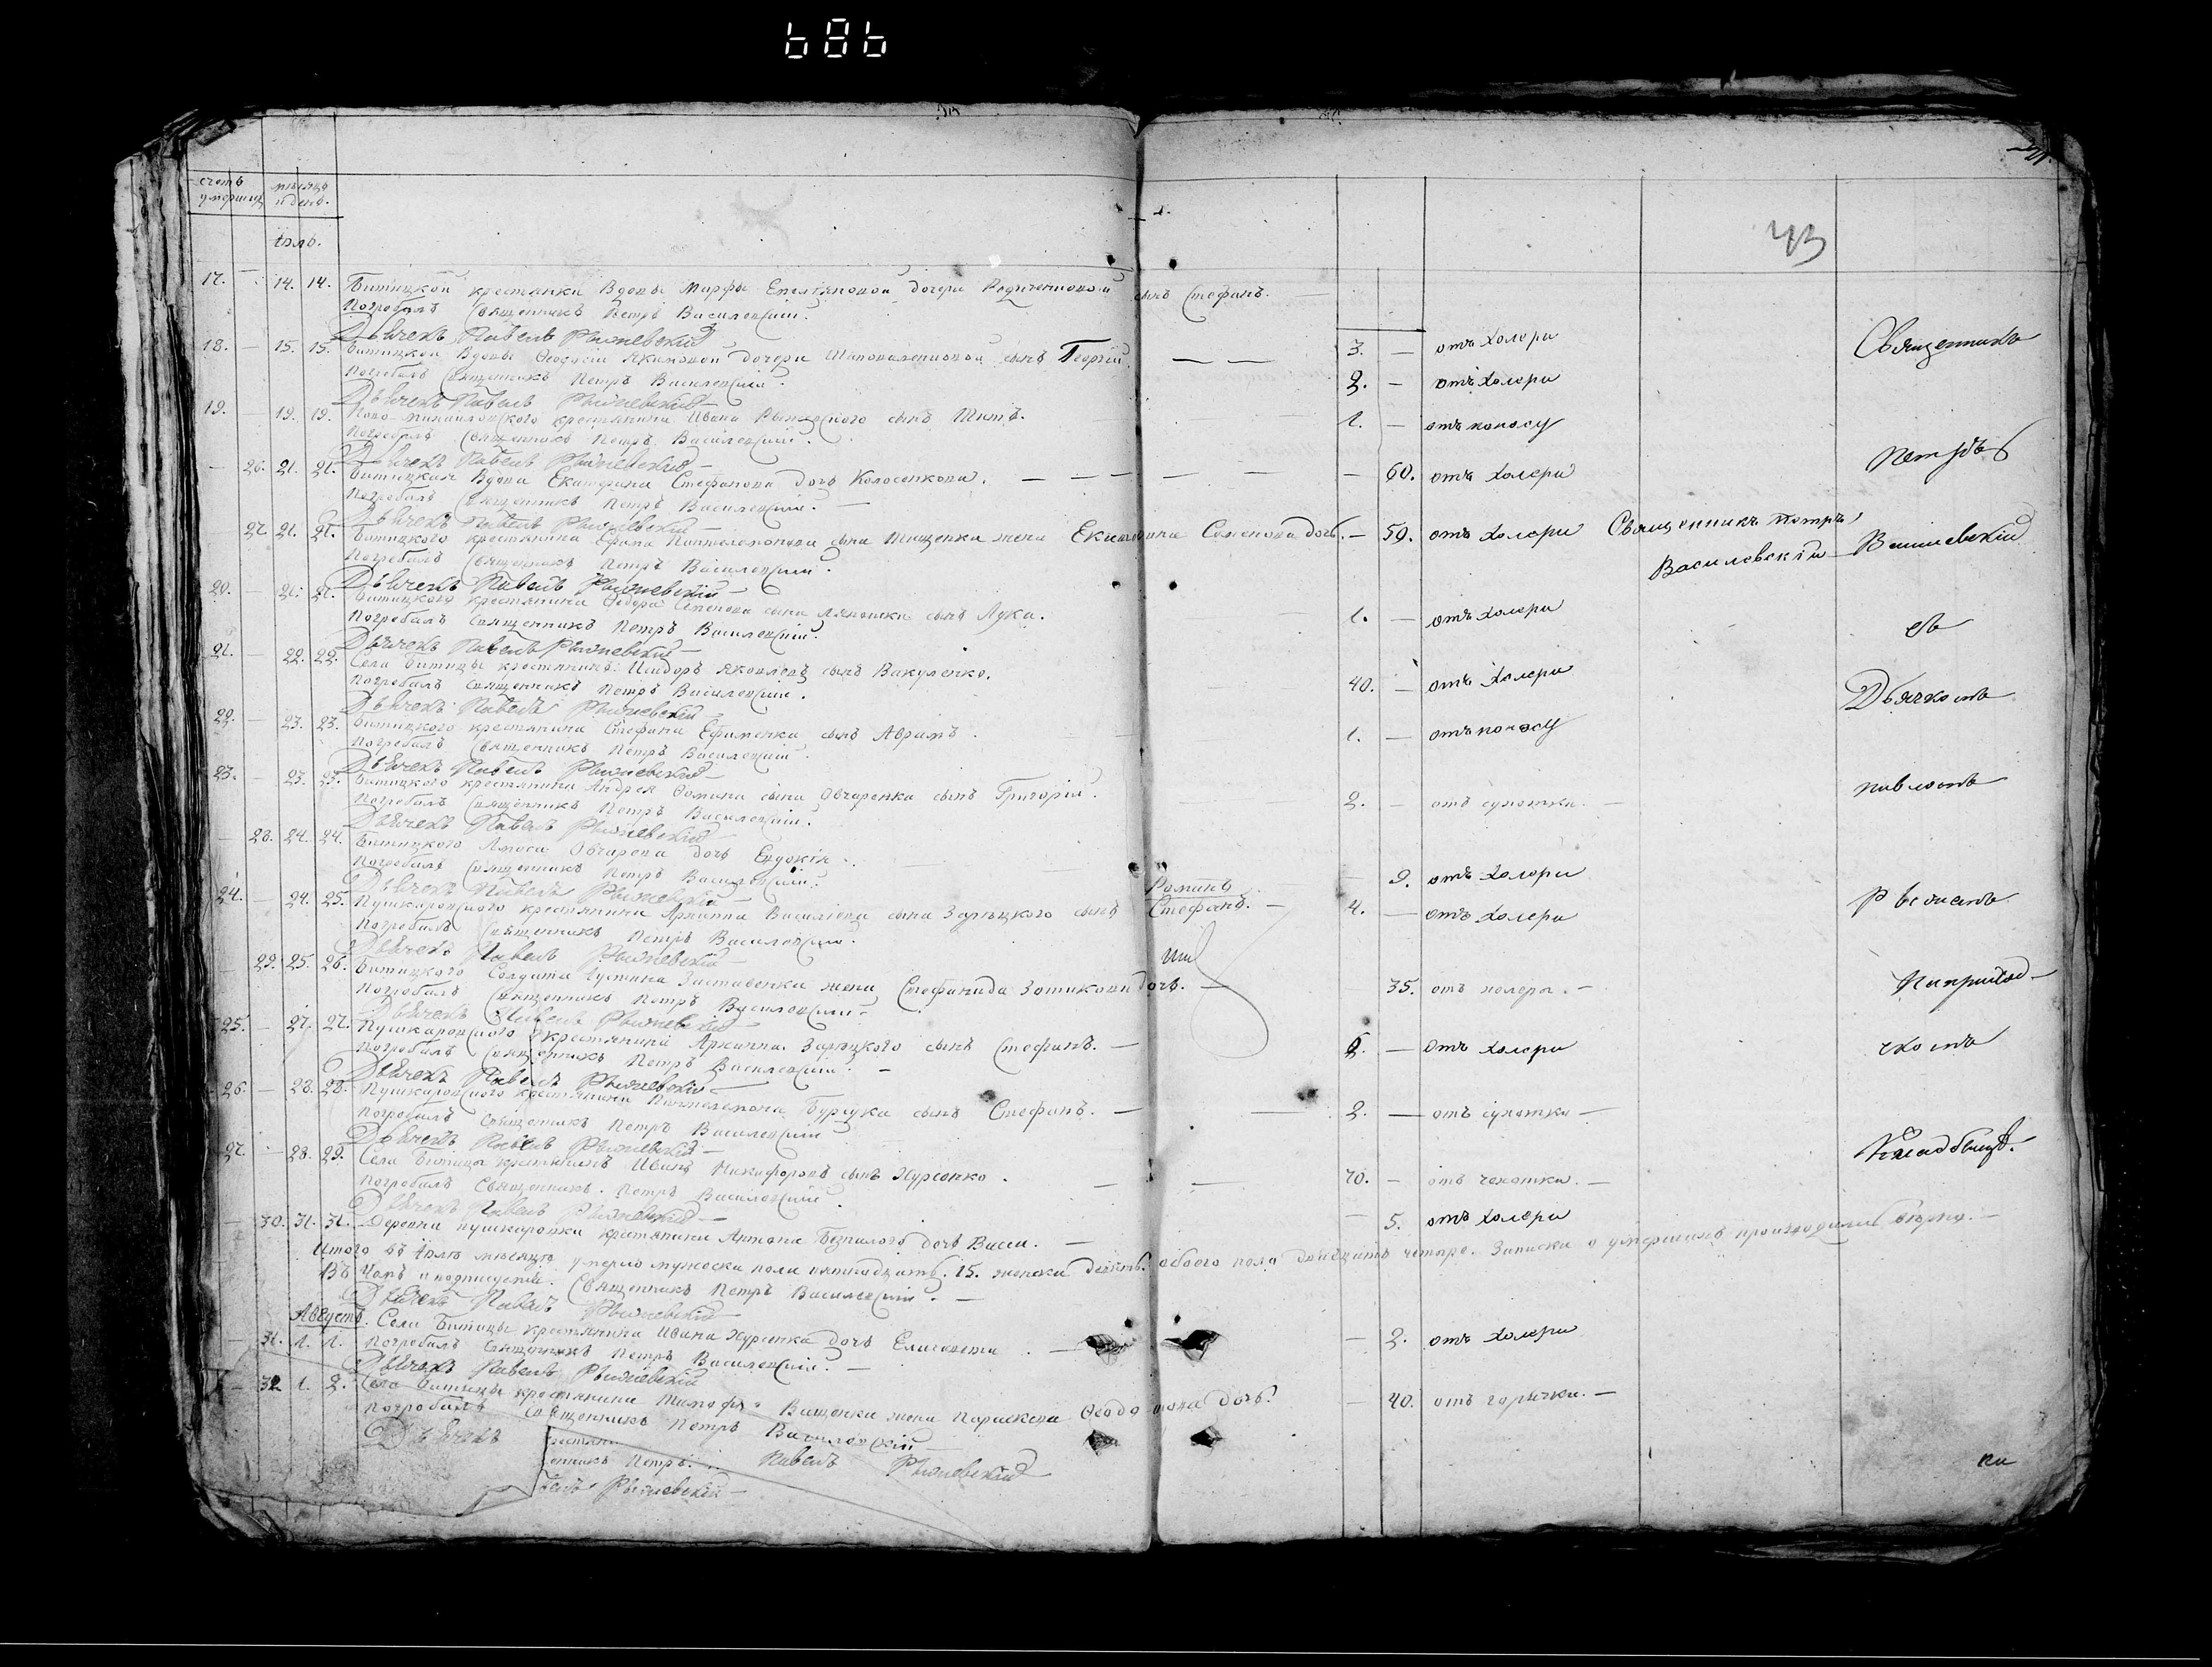 686
43
счетъ умершихъ
мѣсяцъ и день.
Іюль.
17. — 14. 14. Битицкой крестянки Вдовы Марфы Емелтяновой дочери сынъ Стефанъ. — 3. — отъ холери
Погребалъ Священникъ Петръ Василевскій.
Дьячекъ Павелъ Рыжевскій
18. — 15. 15. Битицкой Вдовы Феодосіи Якимовой дочери Шаповаленковой сынъ Георгій. — 2. — отъ холери
Погребалъ Священникъ Петръ Василевскій.
Дьячекъ Павелъ Рыжевскій
19. — 19. 19. Ново-михайловского крестянина Ивана сынъ Титъ. 1. — отъ поносу
Погребалъ Священникъ Петръ Василевскій.
Дьячекъ Павелъ Рыжевскій
— 26. 21. 21. Битицкая Вдова Екатерина Стефанова дочь Колосенкова. — 60. отъ холери
Погребалъ Священникъ Петръ Василевскій.
Дьячекъ Павелъ Рыжевскій
27. 21. 21. Битицкого крестянина Ефима Пантелемонова сына Тищенка жена Екатерина Семенова дочь. — 59. отъ холери
Погребалъ Священникъ Петръ Василевскій.
Дьячекъ Павелъ Рыжевскій
20. — 21. 21. Битицкого крестянина Федора Семенова сына сынъ Лука. 1. — отъ холери
Погребалъ Священникъ Петръ Василевскій.
Дьячекъ Павелъ Рыжевскій
21. — 22. 22. Села Битицы крестянинъ Исидоръ Яковлевъ сынъ Вакуленко. 40. — отъ холери
Погребалъ Священникъ Петръ Василевскій.
Дьячекъ Павелъ Рыжевскій
22. — 23. 23. Битицкого крестянина Стефана Ефименка сынъ Аврамъ. 1. — отъ поносу
Погребалъ Священникъ Петръ Василевскій.
Дьячекъ Павелъ Рыжевскій
23. — 23. 23. Битицкого крестянина Андрея Фомина сына Овчаренка сынъ Григорій. 2. — отъ сухотки. —
Погребалъ Священникъ Петръ Василевскій.
Дьячекъ Павелъ Рыжевскій
— 28. 24. 24. Битицкого Амоса Овчарева дочь Евдокія. 9. отъ холери
Погребалъ Священникъ Петръ Василевскій.
Дьячекъ Павелъ Рыжевскій
Романъ
24. — 24. 25. Пушкаровского крестянина Архиппа Василіева сына Зарицкого сынъ Стефанъ. — 4. — отъ холери
Погребалъ Священникъ Петръ Василевскій.
Дьячекъ Павелъ Рыжевскій
29. 25. 26. Битицкого Солдата Устина Заставенка жена Стефанида дочь. — 35. отъ холери. —
Погребалъ Священникъ Петръ Василевскій.
Дьячекъ Павелъ Рыжевскій
25. — 27. 27. Пушкаровского крестянина Архиппа Зарицкого сынъ Стефанъ. — — отъ холери
Погребалъ Священникъ Петръ Василевскій. —
Дьячекъ Павелъ Рыжевскій
26. — 28. 28. Пушкаровского крестянина Пантелемона Бурдука сынъ Стефанъ. — 2. — отъ сухотки —
Погребалъ Священникъ Петръ Василевскій
Дьячекъ Павелъ Рыжевскій
27. — 28. 29. Села Битицы крестянинъ Иванъ Никифоровъ сынъ Хурсенко. — 70. — отъ чехотки. —
Погребалъ Священникъ Петръ Василевскій.
Дьячекъ Павелъ Рыжевскій
— 30. 31. 31. Деревни Пушкаровки крестянина Антона Безпалого дочь Васса. — 5. отъ холери
Итого въ Іюлѣ мѣсяцѣ умерло мужеска пола пятнадцать. 15. женска девять. обоего пола двадцать четыре. Записки о умершихъ производили вѣрно. —
Въ чемъ и подписуемся. Священникъ Петръ Василевскій. —
Дьячекъ Павелъ Рыжевскій
Августъ.
— 31. 1. 1. Села Битицы крестянина Ивана Хурсенка дочь Елисавета. — 2. отъ холери
Погребалъ Священникъ Петръ Василевскій. —
Дьячекъ Павелъ Рыжевскій
— 32 1. 2. Села Битицы крестянина Тимофея Ващенка жена Параскева дочь. — 40. отъ горячки. —
Погребалъ Священникъ Петръ Василевскій
Дьячекъ Павелъ Рыжевскій
енникъ Петръ
Рыжевскій —
Священникъ Петръ
Василевскій
Священникъ
Петръ
Василевскій
съ
Дьячкомъ
павломъ
На приход-
скомъ
Кладбищѣ.